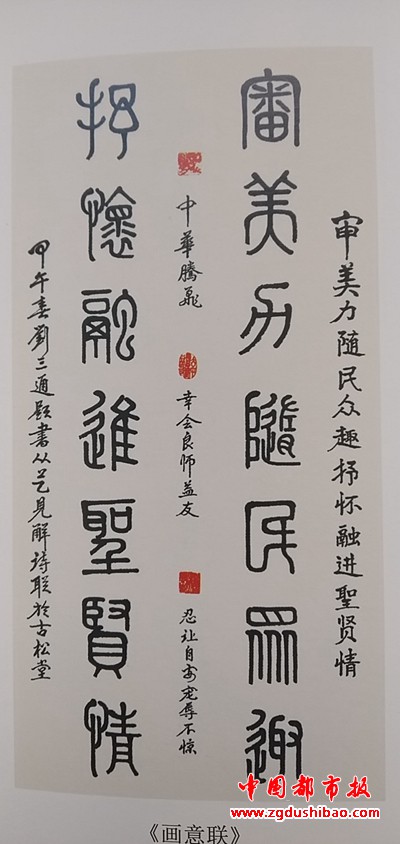 审美力随民众趣抒怀融进聖贤情
審美力隨民眾趣
中華騰飛
幸会良师益友
忍让自安宠辱不惊
抒懷融進聖賢情
甲午春劉三通题書从艺見解诗联於古松堂
中国都市报
www.zgdushibao.com
《画意联》